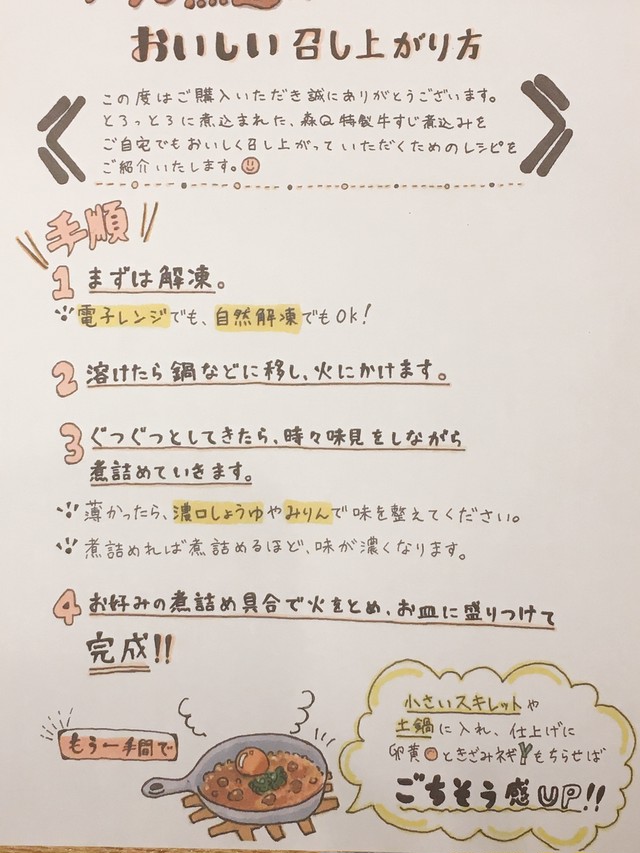 おいしい召し上がり方
この度はご購入いただき誠にありがとうございます。
とろっとろに煮込まれた、森Q特製牛すじ煮込みを
ご自宅でもおいしく召し上がっていただくためのレシピを
ご紹介いたします。
手順
1 まずは解凍。
電子レンジでも、自然解凍でもOk!
2 溶けたら鍋などに移し、火にかけます。
3 ぐつぐつとしてきたら、時々味見をしながら
煮詰めていきます。
薄かったら、濃口しょうゆやみりんで味を整えてください。
煮詰めれば煮詰めるほど、味が濃くなります。
4 お好みの煮詰め具合で火をとめ、お皿に盛りつけて
完成!!
もう一手間で
小さいスキレットや
土鍋に入れ、仕上げに
卵黄ときざみネギをちらせば
ごちそう感UP!!